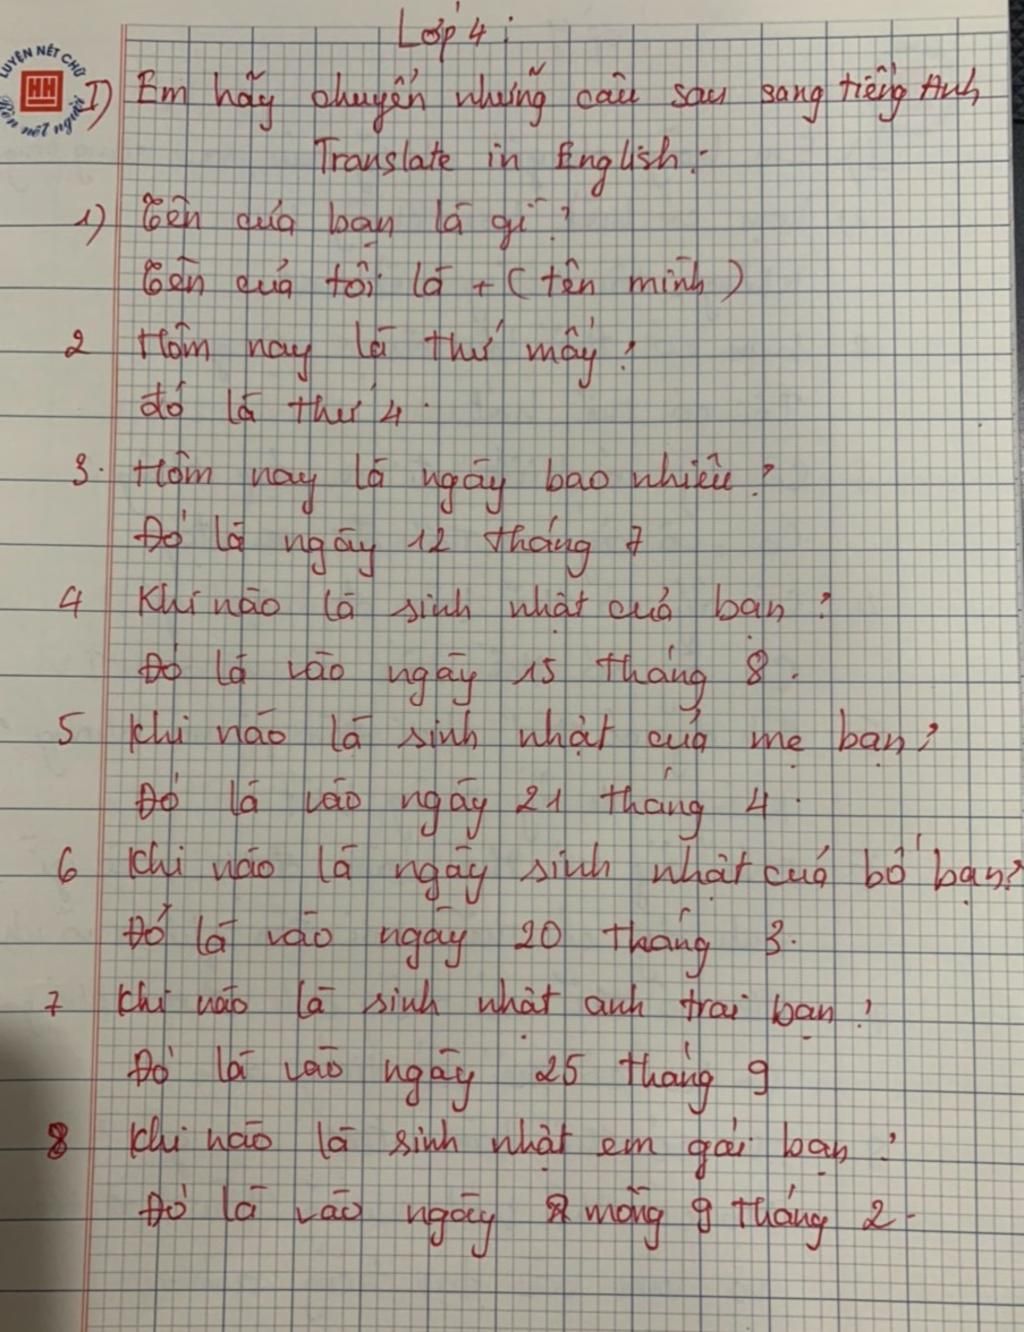 Lớp 4:
LUYỆN NÉT CHỮ
HH
Rèn nết người
I) Em hãy chuyển những câu sau sang tiếng Anh
Translate in English.
1) Tên của bạn là gì?
Tên của tôi là + (tên mình)
2 Hôm nay là thứ mấy?
đó là thứ 4.
3. Hôm nay là ngày bao nhiêu?
Đó là ngày 12 tháng 7
4 Khi nào là sinh nhật của bạn?
Đó là vào ngày 15 tháng 8.
5 Khi nào là sinh nhật của mẹ bạn?
Đó là vào ngày 21 tháng 4.
6 Khi nào là ngày sinh nhật của bố bạn?
Đó là vào ngày 20 tháng 3.
7 Khi nào là sinh nhật anh trai bạn?
Đó là vào ngày 25 tháng 9
8 Khi nào là sinh nhật em gái bạn?
Đó là vào ngày mồng 9 tháng 2.